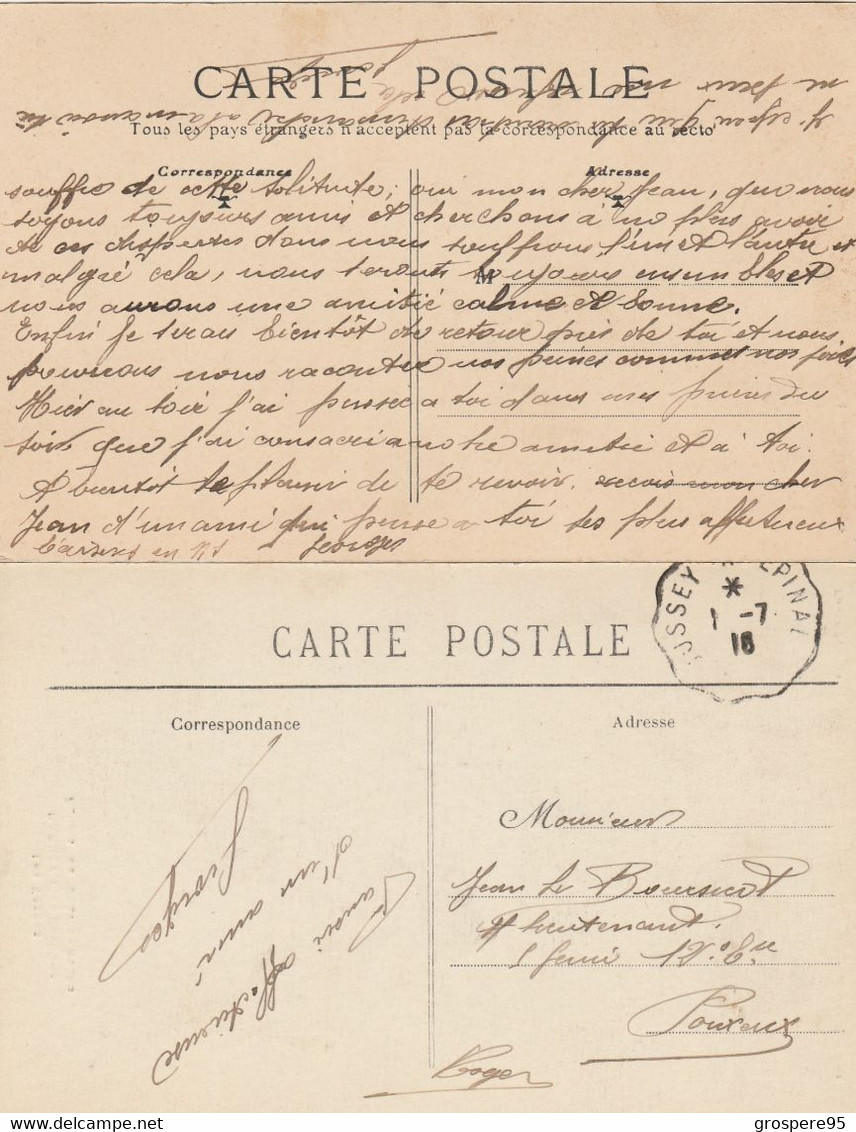 CARTE POSTALE
Tous les pays étrangers n'acceptent pas la correspondance au recto
Correspondance
Adresse
M
souffre de cette solitute; oui mon cher Jean, que nous
soyons toujours amis et cherchons a no plus avoir
de ces disputes dans nous souffrons l'un et l'autre et
malgré cela, nous serons toujours ensembles et
nous aurons une amitié calme et bonne.
Enfin je serai bientôt de retour près de toi et nous
pourrons nous raconter nos peines comme nos joies
Hier au soir j'ai pensee a toi dans mes prières du
soir que j'ai consacri a notre amitié et a toi.
A bientôt le plaisir de te revoir. recois mon cher
Jean d'un ami qui pense a toi ses plus affectueux
baisers
Georges
CARTE POSTALE
JUSSEY EPINAL
1 -7
16
Correspondance
Adresse
d'un ami
Georges
Monsieur
Jean Le Boursicot
Lieutenant
Pouxeux
Roger
grospere95